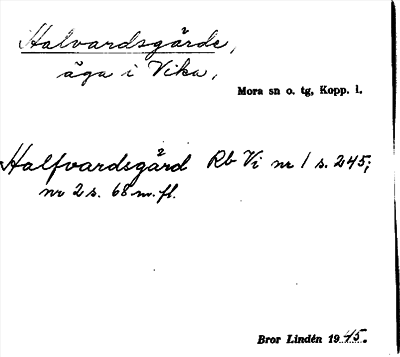 Halvardsgårde,
äga i Vika,
Mora sn o. tg, Kopp. l.
Halfvardsgård Rb Vi nr 1 s. 245;
nr 2 s. 68 m. fl.
Bror Lindén 1945.